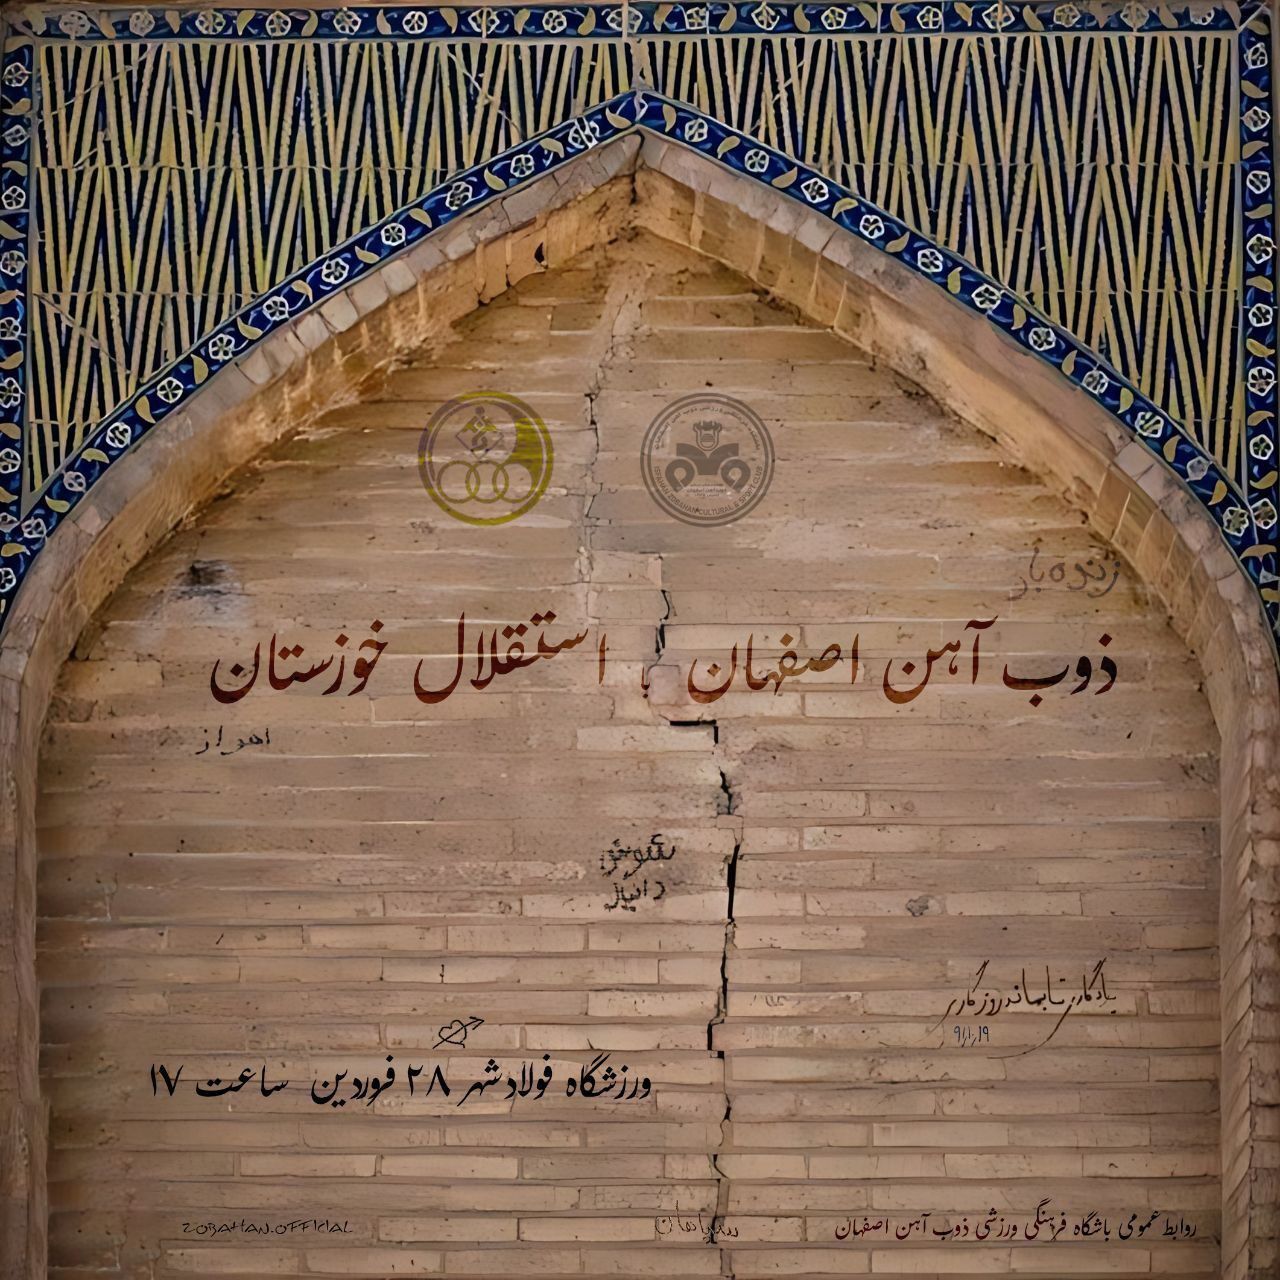 ISFAHAN ZOBAHAN CULTURAL & SPORT CLUB
زنده باد
ذوب آهن اصفهان با استقلال خوزستان
اهواز
شوش
دانیال
یادگاری تا بماند روزگاری
۹/۱/۱۹
ورزشگاه فولادشهر ۲۸ فروردین ساعت ۱۷
روابط عمومی باشگاه فرهنگی ورزشی ذوب آهن اصفهان
سپاهان
ZOBAHAN.OFFICIAL